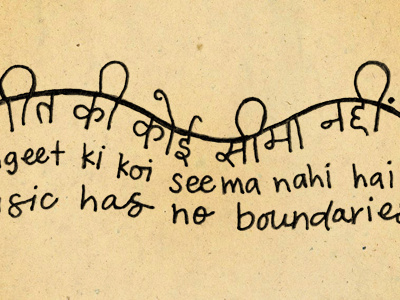 गीत की कोई सीमा नहीं
ngeet ki koi seema nahi hai
usic has no boundaries